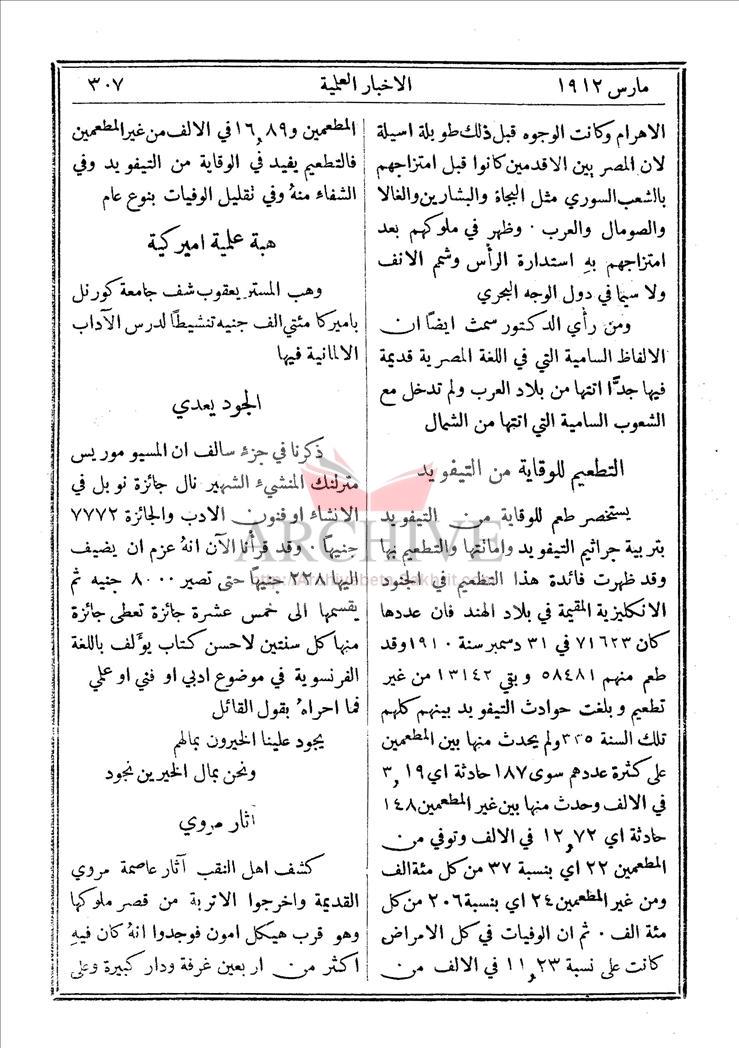 مارس ١٩١٢ الاخبار العلمية ٣٠٧
الاهرام وكانت الوجوه قبل ذلك طويلة اسيلة
لان المصر بين الاقدمين كانوا قبل امتزاجهم
بالشعب السوري مثل البجاة والبشارين والغالا
والصومال والعرب ٠ وظهر في ملوكهم بعد
امتزاجهم بهِ استدارة الرأس وشمم الانف
ولا سيما في دول الوجه البحري
ومن رأي الدكتور سمث ايضاً ان
الالفاظ السامية التي في اللغة المصرية قديمة
فيها جدًّا اتتها من بلاد العرب ولم تدخل مع
الشعوب السامية التي اتتها من الشمال
التطعيم للوقاية من التيفويد
يستحضر طعم للوقاية من التيفويد
بتربية جراثيم التيفويد واماتتها والتطعيم بها
وقد ظهرت فائدة هذا التطعيم في الجنود
الانكليزية المقيمة في بلاد الهند فان عددها
كان ٧١٦٢٣ في ٣١ دسمبر سنة ١٩١٠ وقد
طعم منهم ٥٨٤٨١ وبقي ١٣١٤٢ من غير
تطعيم وبلغت حوادث التيفويد بينهم كلهم
تلك السنة ٣٣٥ ولم يحدث منها بين المطعمين
على كثرة عددهم سوى ١٨٧ حادثة اي ٣,١٩
في الالف وحدث منها بين غير المطعمين ١٤٨
حادثة اي ١٢,٧٢ في الالف وتوفي من
المطعمين ٢٢ اي بنسبة ٣٧ من كل مئة الف
ومن غير المطعمين ٢٤ اي بنسبة ٢٠٦ من كل
مئة الف ٠ ثم ان الوفيات في كل الامراض
كانت على نسبة ١١,٢٣ في الالف من
المطعمين و١٦,٨٩ في الالف من غير المطعمين
فالتطعيم يفيد في الوقاية من التيفويد وفي
الشفاء منهُ وفي تقليل الوفيات بنوع عام
هبة علمية اميركية
وهب المستر يعقوب شف جامعة كورنل
باميركا مئتي الف جنيه تنشيطاً لدرس الآداب
الالمانية فيها
الجود يعدي
ذكرنا في جزءٍ سالف ان المسيو موريس
مترلنك المنشيء الشهير نال جائزة نوبل في
الانشاء او فنون الادب والجائزة ٧٧٧٢
جنيهاً ٠ وقد قرأنا الآن انهُ عزم ان يضيف
اليها ٢٢٨ جنيهاً حتى تصير ٨٠٠٠ جنيه ثم
يقسمها الى خمس عشرة جائزة تعطى جائزة
منها كل سنتين لاحسن كتاب يؤلف باللغة
الفرنسوية في موضوع ادبي او فني او علمي
فما احراهُ بقول القائل
يجود علينا الخيرون بمالهم
ونحن بمال الخيرين نجود
آثار مروي
كشف اهل النقب آثار عاصمة مروي
القديمة واخرجوا الاتربة من قصر ملوكها
وهو قرب هيكل امون فوجدوا انهُ كان فيهِ
اكثر من اربعين غرفة ودار كبيرة وعلى
ARCHIVE